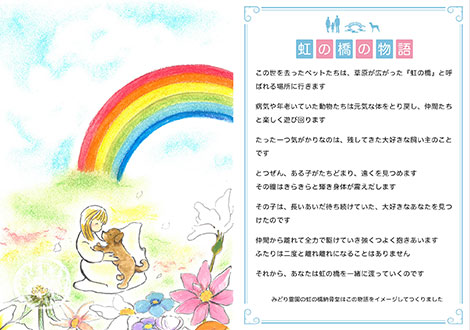 虹の橋の物語
この世を去ったペットたちは、草原が広がった『虹の橋』と呼
ばれる場所に行きます
病気や年老いていた動物たちは元気な体をとり戻し、仲間たち
と楽しく遊び回ります
たった一つ気がかりなのは、残してきた大好きな飼い主のこと
です
とつぜん、ある子がたちどまり、遠くを見つめます
その瞳はきらきらと輝き身体が震えだします
その子は、長いあいだ待ち続けていた、大好きなあなたを見つ
けたのです
仲間から離れて全力で駆けていき強くつよく抱きあいます
ふたりは二度と離れ離れになることはありません
それから、あなたは虹の橋を一緒に渡っていくのです
みどり霊園の虹の橋納骨堂はこの物語をイメージしてつくりました